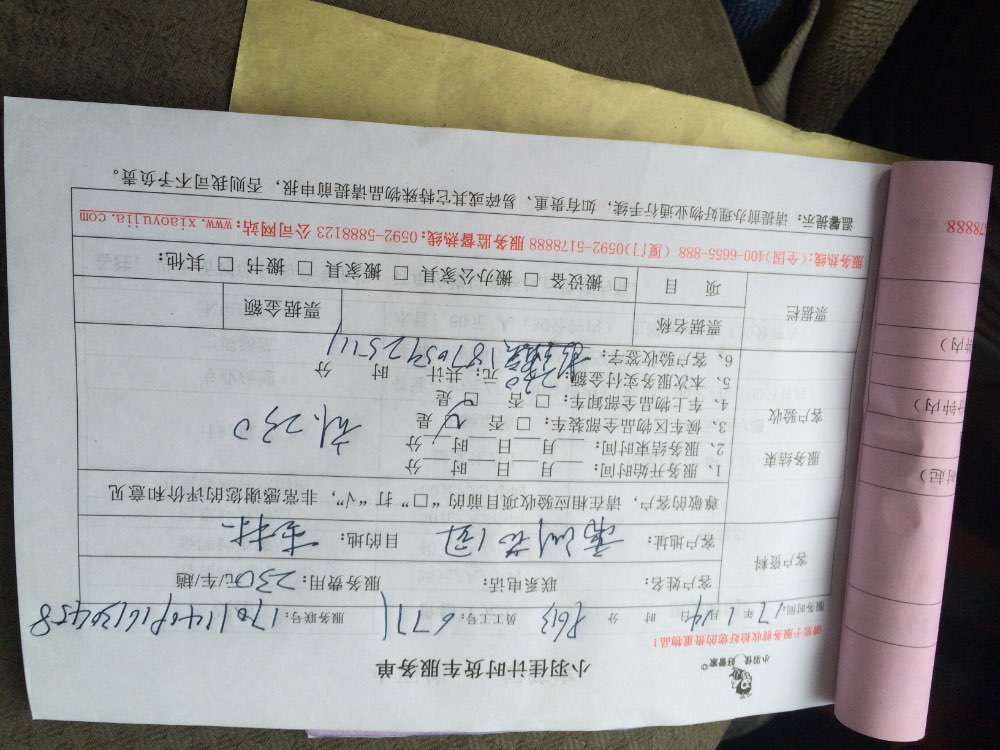 小羽佳 好管家
小羽佳计时货车服务单
请您于服务前收拾好您的贵重物品！
服务时间：17年1月14日 时 分 员工号：6771 服务联号：
客户资料
客户姓名： 联系电话： 服务费用：230元/车/趟
客户地址： 目的地：
尊敬的客户，请在相应验收项目前的“□”打“√”，非常感谢您的评价和意见
服务结束
客户验收
1、服务开始时间：___月___日___时___分
2、服务结束时间：___月___日___时___分
3、候车区物品全部装车：□ 否 □ 是
4、车上物品全部卸车：□ 否 □ 是
5、本次服务实付金额：230 元；共计 时 分
6、客户验收签字：
230
票据栏
票据名称 票据金额
项 目 □ 搬设备 □ 搬办公家具 □ 搬家具 □ 搬书 □ 其他：
服务热线：(全国)400-6655-888 (厦门)0592-5178888 服务监督热线：0592-5888123 公司网站：www.xiaoyujia.com
温馨提示：请提前办理好物业通行手续，如有贵重、易碎或其它特殊物品请提前申报，否则我司不予负责。
78888
钟内）
时起）